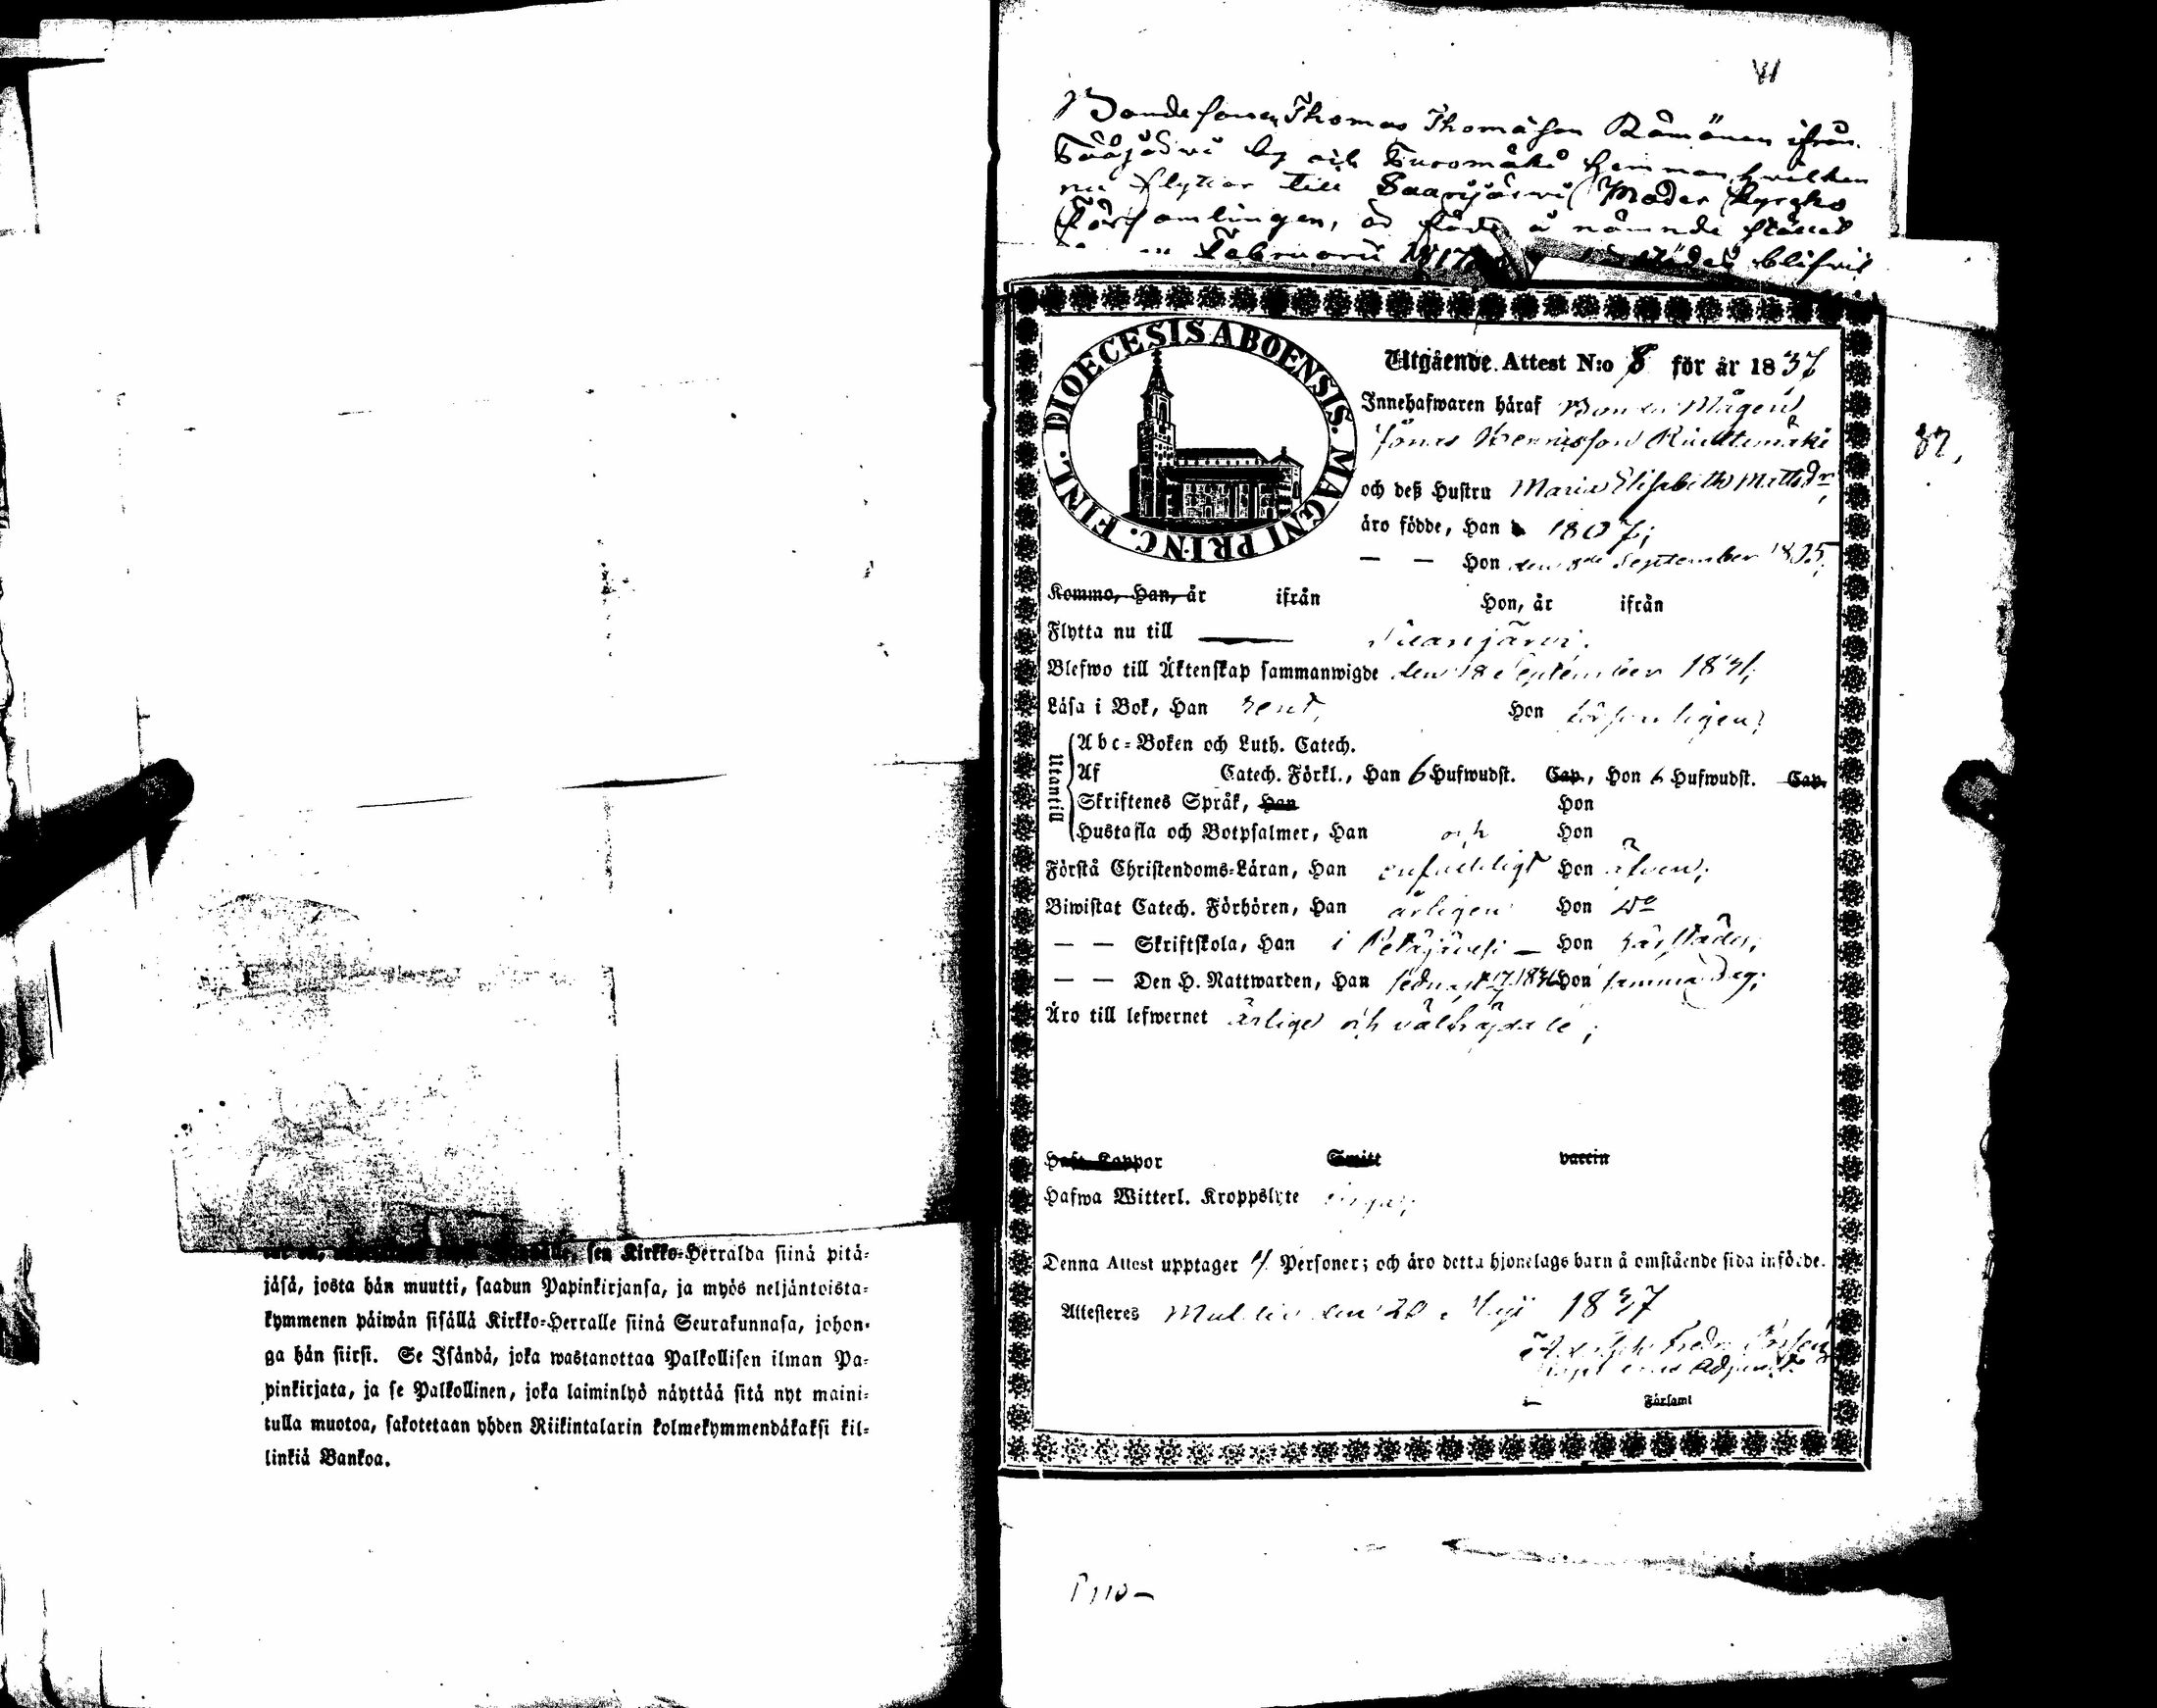 sen Kirkko-Herralda siinä pitä-
jäsä, josta hän muutti, saadun Papinkirjansa, ja myös neljäntoista-
kymmenen päiwän sisällä Kirkko-Herralle siinä Seurakunnasa, johon-
ga hän siirsi. Se Isändä, joka wastanottaa Palkollisen ilman Pa-
pinkirjata, ja se Palkollinen, joka laiminlyö näyttää sitä nyt maini-
tulla muotoa, sakotetaan yhden Riikintalarin kolmekymmendäkaksi kil-
linkiä Bankoa.
Bondesonen Thomas Thomasson Rämänen ifrån
by och hemman, hvilken
nu flyttar till Saarijärwi Moder Kyrcko
Församlingen, är född å nämnde ställe
Februarii 1817 blifvit
DIOECESIS ABOENSIS. MAGNI PRINC. FINL.
Utgående Attest N:o 8 för år 1837
Innehafwaren häraf Bonde Mågen
Jonas
och deß Hustru Maria Elisabeth Mattsdr
äro födde, Han 1807;
— — Hon den September
Kommo, Han, år ifrån Hon, år ifrån
Flytta nu till Saarijärvi;
Blefwo till Äktenskap sammanwigde den 18 September 1831;
Läsa i Bok, Han rent, Hon försvarligen;
Utantill
Abc-Boken och Luth. Catech.
Af Catech. Förkl., Han 6 Hufwudst. Cap., Hon 6 Hufwudst. Cap.
Skriftenes Språk, Han Hon
Hustafla och Botpsalmer, Han och Hon
Förstå Christendoms-Läran, Han enfaldigt Hon äfven;
Biwistat Catech. Förhören, Han årligen Hon Do
— — Skriftskola, Han i Petäjävesi — Hon härstädes;
— — Den H. Nattwarden, Han sednast Hon samma dag;
Äro till lefwernet ärlige och välfrägdade;
Haft Koppor Smitt vaccin
Hafwa Witterl. Kroppslyte inga;
Denna Attest upptager 4 Personer; och äro detta hjonelags barn å omstående sida införde.
Attesteres Multia den 20 Maji 1837
Adolph Fredr.
Adjunct
i Församl
87,